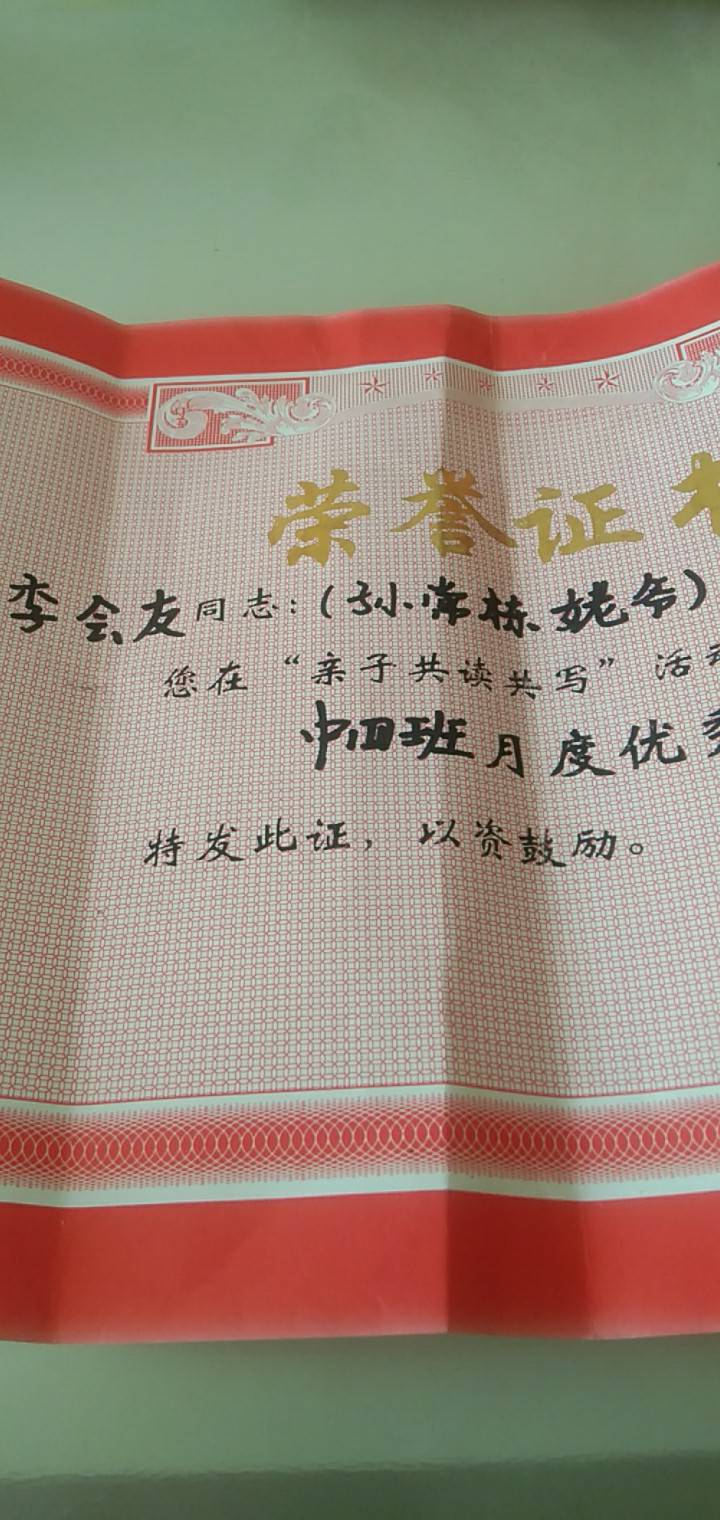 荣誉证书
李会友同志：（孙常栋姥爷）
您在“亲子共读共写”活动
中四班月度优秀
特发此证，以资鼓励。